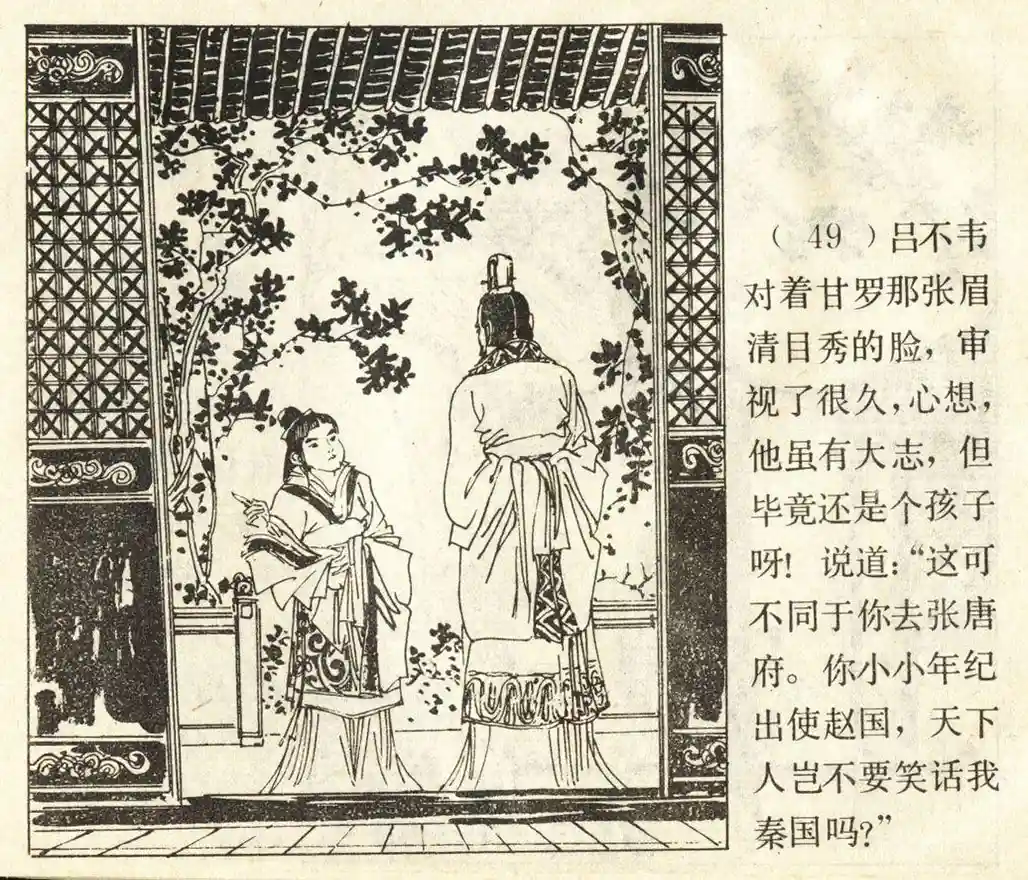 （49）吕不韦
对着甘罗那张眉
清目秀的脸，审
视了很久，心想，
他虽有大志，但
毕竟还是个孩子
呀！说道：“这可
不同于你去张唐
府。你小小年纪
出使赵国，天下
人岂不要笑话我
秦国吗？”